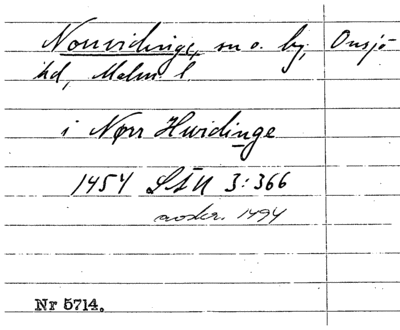 Norrvidinge, sn o. by, Onsjö
hd, Malm l.
i Nørr Hwidinge
1454 LSU 3:366
avskr. 1494
Nr 5714.